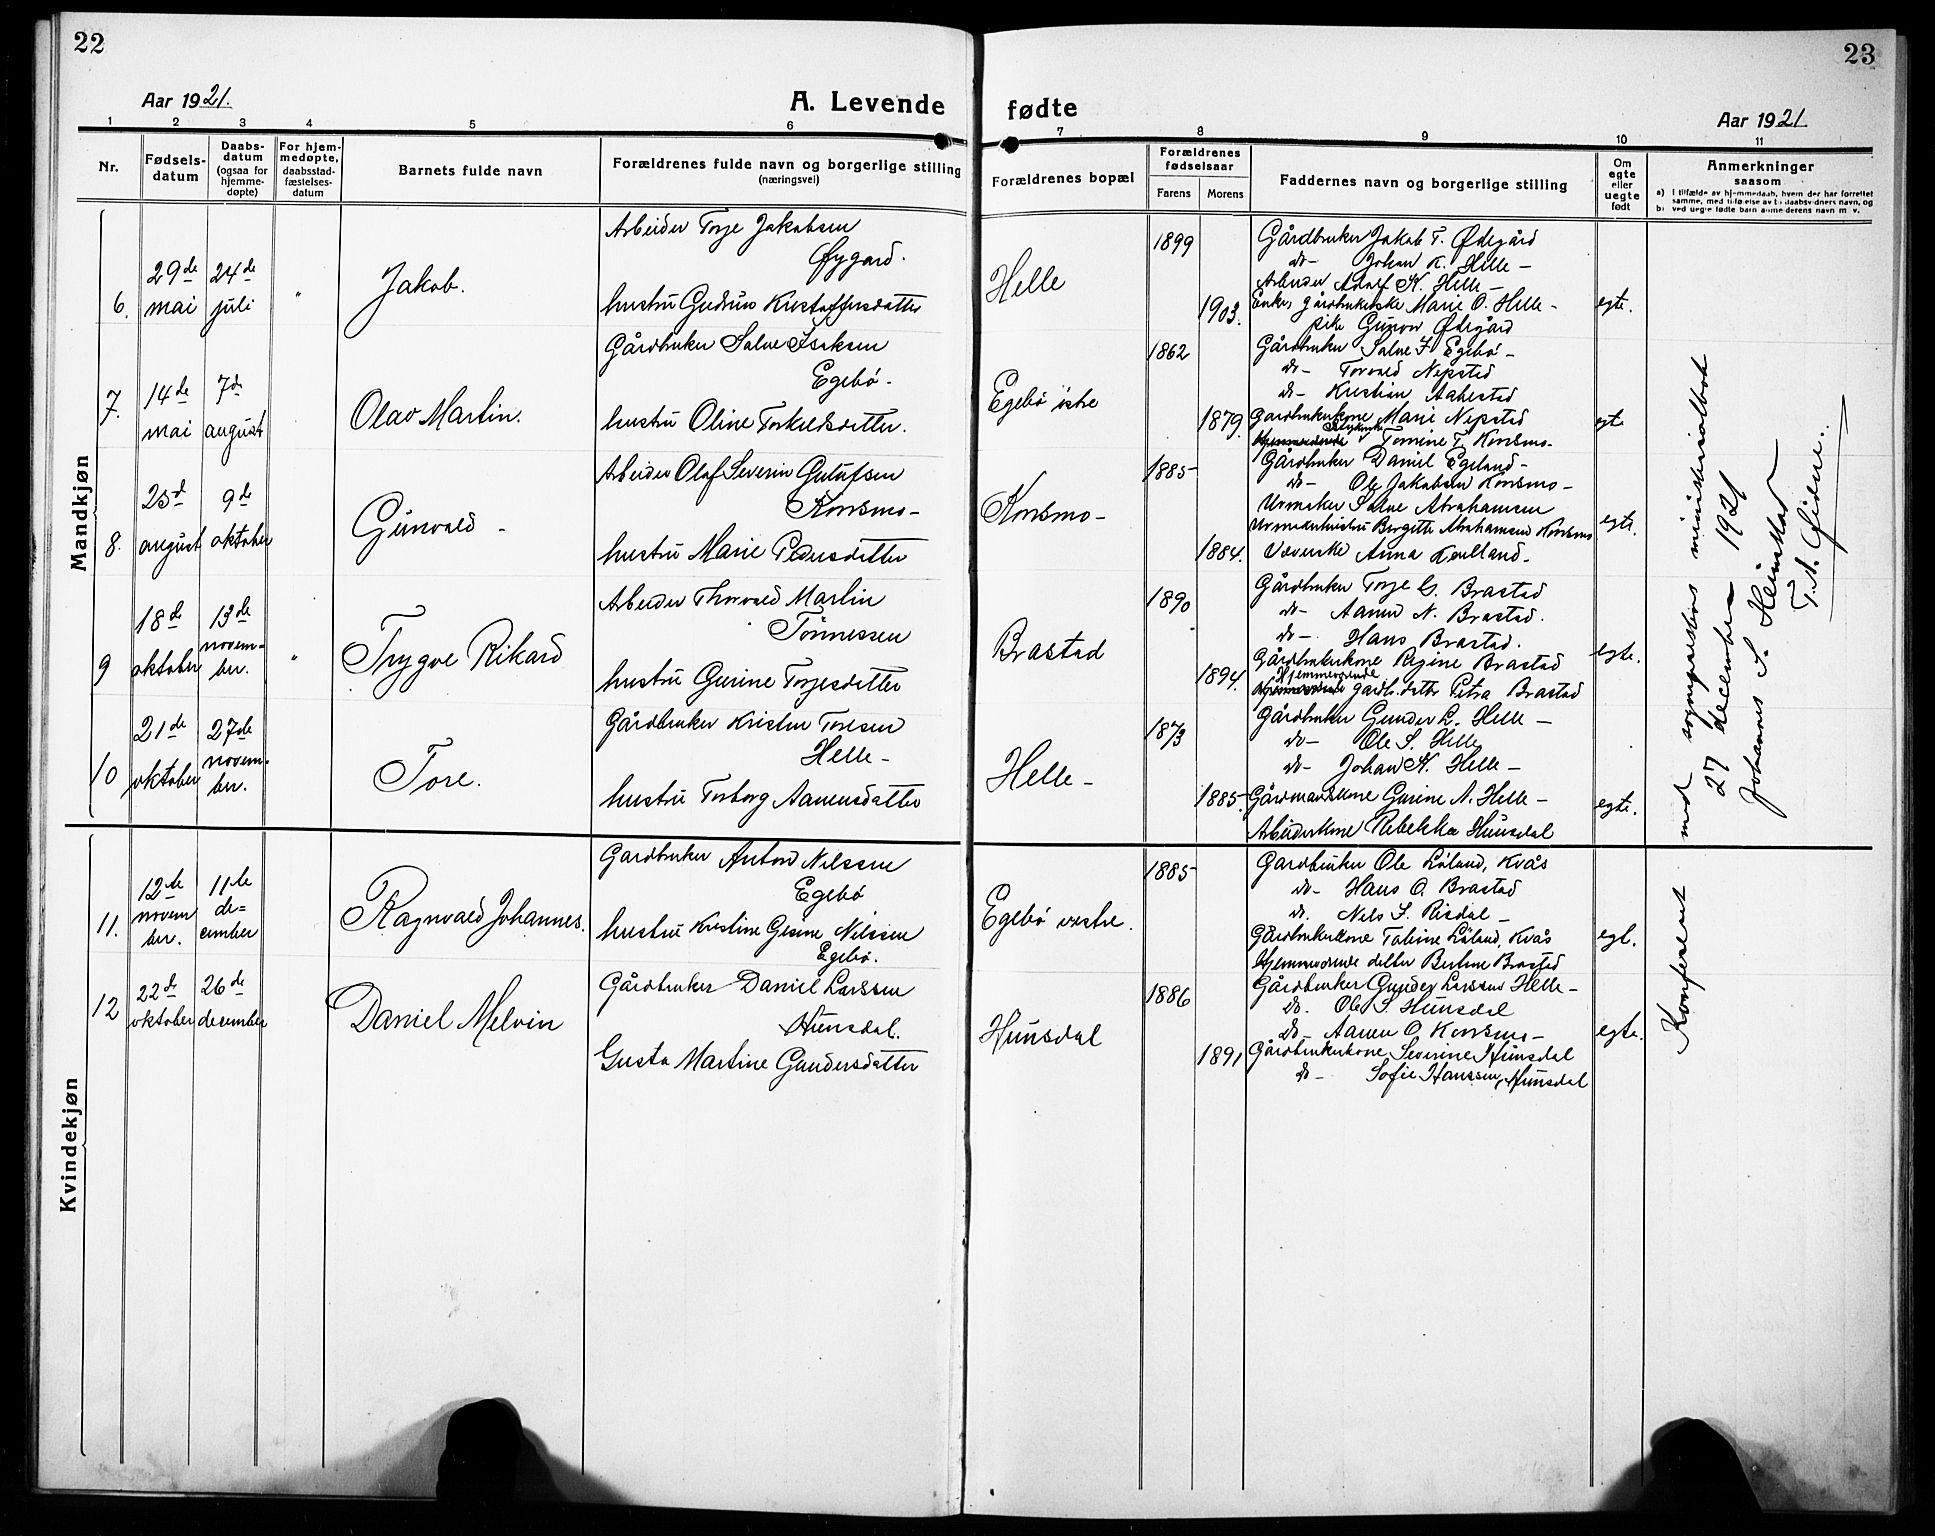 22
23
Aar 1921.
A. Levende
fødte
Aar 1921
1 2 3 4 5 6 7 8 9 10 11
Nr.
Fødsels-
datum
Daabs-
datum
(ogsaa for
hjemme-
døpte)
For hjem-
medøpte,
daabsstad-
fæstelses-
datum
Barnets fulde navn
Forældrenes fulde navn og borgerlige stilling
(næringsvei)
Forældrenes bopæl
Forældrenes
fødselsaar
Farens
Morens
Faddernes navn og borgerlige stilling
Om
egte
eller
uegte
født
Anmerkninger
saasom
a) I tilfælde av hjemmedaab, hvem der har forrettet
samme, med tilføielse av to daabsvidners navn, og
b) ved uegte fødte barn anmelderens navn m. v.
Mandkjøn
6.
29de
mai
24de
juli
"
Jakob.
Arbeider Torje Jakobsen
Øygard.
hustru Gudrun Kristoffersdatter
Helle
1899
1903.
Gårdbruker Jakob T. Ødegård
do- Johan K. Helle -
Arbeider Adolf K. Helle -
Enke, gårdbrukerske Marie O. Helle -
pike Gunvor Ødegård
egte.
7.
14de
mai
7de
august
Olav Martin.
Gårdbruker Salve Isaksen
Egebø.
hustru Oline Torkildsdatter.
Egebø østre
1862
1879.
Gårdbruker Salve I. Egebø -
do- Torvald Nepstad
do- Kristian Aabestad
Gardbrukerkone Marie Nepstad
Tomine T. Konsmo.
egte
8.
25d
august
9de
oktober
Gunvald -
Arbeider Olaf Severin Gustafsen
Konsmo-
hustru Marie Pedersdatter
Konsmo-
1885-
1884.
Gårdbruker Daniel Egeland-
do- Ole Jakobsen Konsmo-
Urmaker Salve Abrahamsen
Urmakerhustru Birgitte Abrahamsen Konsmo
Væverske Anna Keulland.
egte.
9
18de
oktober
13de
novem-
ber.
"
Trygve Rikard
Arbeider Thorvald Martin
Tönnessen
hustru Gurine Torjesdatter
Brastad
1890
1894.
Gårdbruker Torje G. Brastad
do- Aanen N. Brastad.
do- Hans Brastad.
Gårdbrukerkone Regine Brastad
Hjemmeværende
gardb. datter Petra Brastad
egte.
10
21de
oktober
27de
novem-
ber.
Tore.
Gårdbruker Kristen Toresen
Helle-
hustru Torborg Aanensdatter
Helle-
1873
1885-
Gårdbruker Gunder L. Helle -
do- Ole S. Helle
do- Johan K. Helle -
Gårdmanskone Gurine A. Helle -
Arbeiderkone Rebekka Hunsdal
egte.
Kvindekjøn
11.
12te
novem
ber.
11te
de=
cember
Ragnvald Johannes.
Gardbruker Anton Nilssen
Egebø
hustru Kristine Gesine Nilssen
Egebø.
Egebø vestre.
1885-
Gardbruker Ole Løland, Kvås
do- Hans O. Brastad
do. Nils I. Risdal -
Gårdbrukerkone Tobine Løland, Kvås
Hjemmeværende datter Bertine Brastad
egt.
12
22de
oktober
26de
desember
Daniel Melvin
Gårdbruker Daniel Larssen
Hunsdal.
Gusta Martine Gundersdatter
Hunsdal
1886
1891
Gårdbruker Gunder Larssen Helle-
do. Ole S. Hunsdal
do- Aanen O. Konsmo-
Gårdbrukerkone Severine Hunsdal
do- Sofie Hanssen, Hunsdal
egte.
Konferert med sogneprestens ministerialbok
27 december 1921
Johannes S. Heimstad
T. A. Eidene.